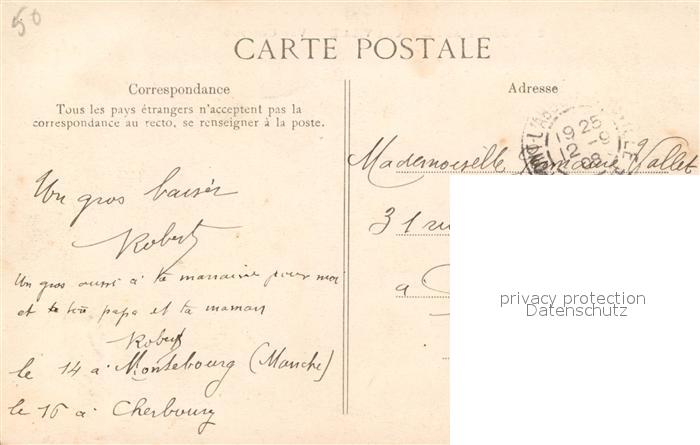 50
CARTE POSTALE
Correspondance
Tous les pays étrangers n'acceptent pas la
correspondance au recto, se renseigner à la poste.
Un gros baiser
Robert
Un gros aussi à ta marraine pour moi
et ton papa et ta maman
Robert
le 14 à Montebourg (Manche)
le 15 à Cherbourg
Adresse
Mademoiselle Vallet
31 rue
à
privacy protection
Datenschutz